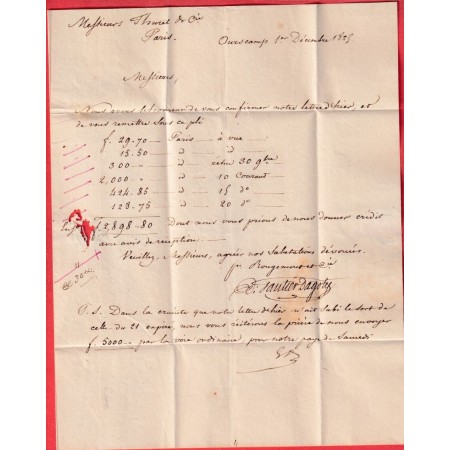 Messieurs Thurel & Cie
Paris.
Ourscamp 1er Décembre 1835
Messieurs,
Nous avons l'honneur de vous confirmer notre lettre d'hier, et
de vous remettre sous ce pli
f. 29.70 — Paris — à vue
15.50 — d° — d°
300 — d° — 30 9bre
2,000 — d° — 10 Courant
424.85 — d° — 15 d°
128.75 — d° — 20 d°
f. 2,898-80 Dont nous vous prions de nous donner crédit
avec avis de réception.
Veuillez, Messieurs, agréer nos Salutations dévouées.
pr. Rougemont et Cie
P.S. Dans la crainte que notre lettre d'hier n'ait subi le sort de
celle du 21 expiré, nous vous réitérons la prière de nous envoyer
f. 5000 — par la voie ordinaire pour notre paye de Samedi